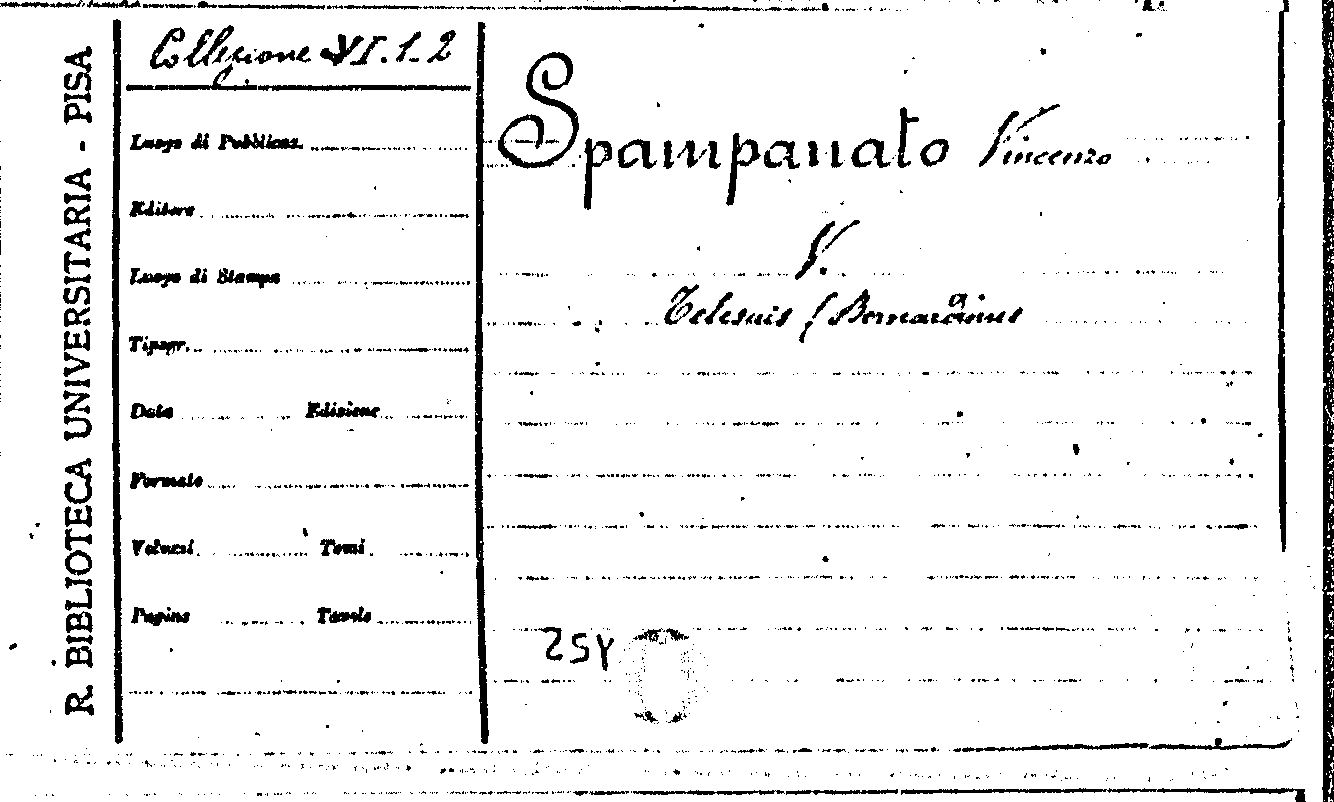 R. BIBLIOTECA UNIVERSITARIA - PISA
Collezione VI.1-2
Luogo di Pubblicaz.
Editore
Luogo di Stampa
Tipogr.
Data Edizione
Formato
Volumi Tomi
Pagine Tavole
Spampanato Vincenzo
V.
Telesius (Bernardinus